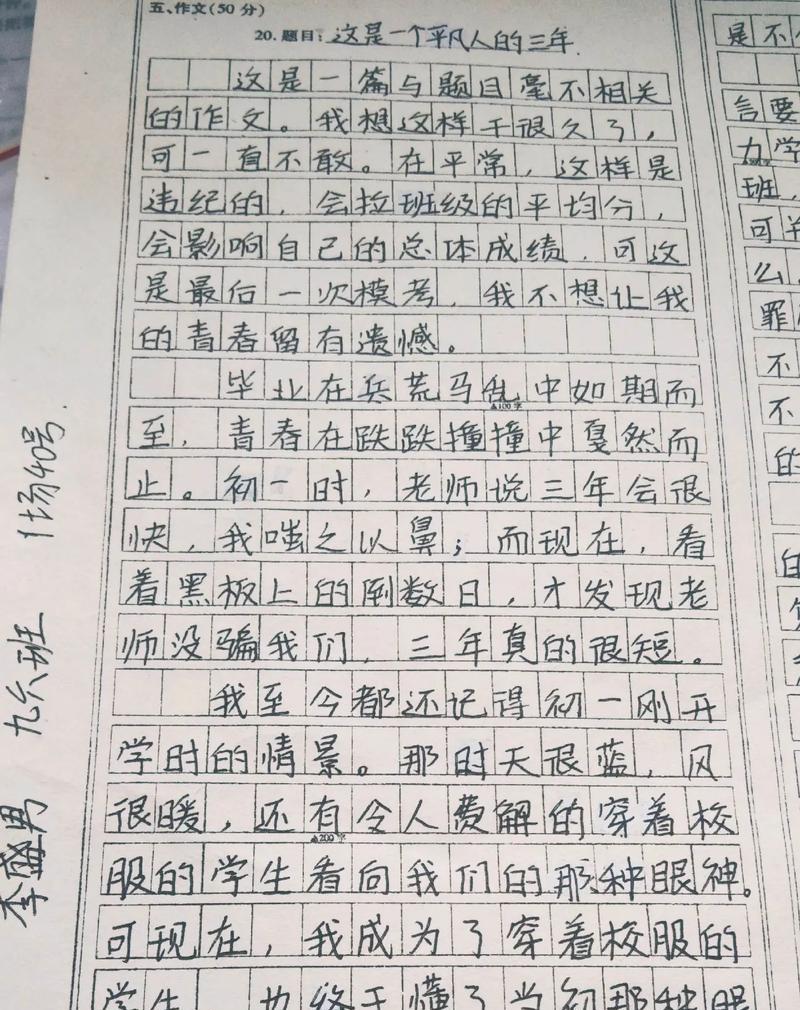 五、作文(50分)
20.题目:这是一个平凡人的三年.
这是一篇与题目毫不相关
的作文。我想这样干很久了,
可一直不敢。在平常,这样是
违纪的,会拉班级的平均分,
会影响自己的总体成绩.可这
是最后一次模考,我不想让我
的青春留有遗憾。
毕业在兵荒马乱中如期而
▲100字
至,青春在跌跌撞撞中戛然而
止。初一时,老师说三年会很
快,我嗤之以鼻;而现在,看
着黑板上的倒数日,才发现老
师没骗我们,三年真的很短。
我至今都还记得初一刚开
学时的情景。那时天很蓝,风
很暖,还有令人费解的穿着校
▲200字
服的学生看向我们的那种眼神。
可现在,我成为了穿着校服的
学生,也终于懂了当初那种眼
李盛男 九六班 1场40号
是不
言要
力学
班,
可
么,
罪
不
不
的